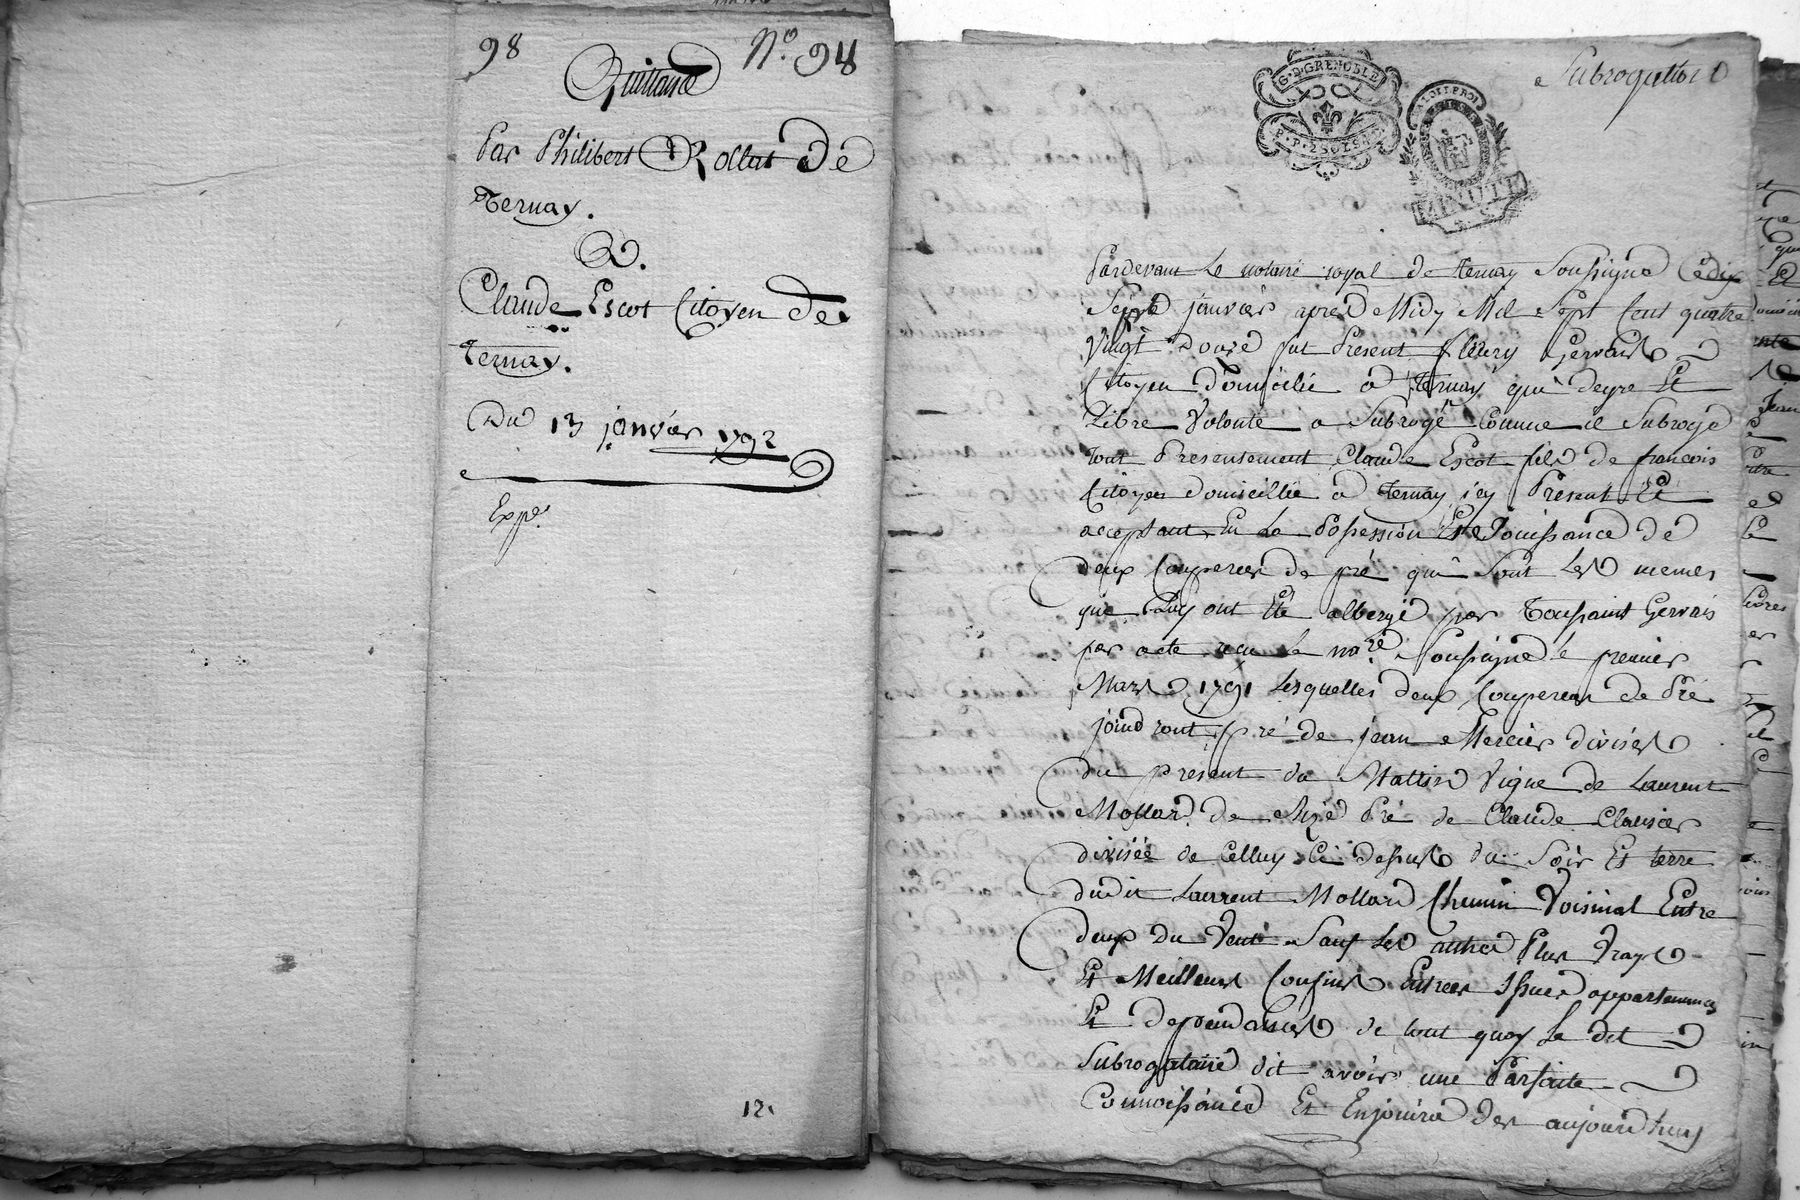 98
N.º 94
Quittance
Par Philibert Rollat de
Ternay.
A.
Claude Escot Citoyen de
Ternay.
Du 13 janvier 1792
Expé.
12.
Subrogation
G. D. GRENOBLE
P. P. 2 SOLS
LA LOI ET LE ROI
MINUTE
Pardevant Le notaire royal de ternay Soussigné Cedix
Sept janvier apres Midy Mil Sept Cent quatre
Vingt douze fut Present fleury Gervais
Citoyen domicilié a ternay qui degre Et
Libre Volonté a Subrogé Comme il Subroge
tout Presentement Claude Escot fils de francois
Citoyen domicillié a ternay icy Present Et
acceptant En La Possession Et Jouissance de
deux Couperees de pré qui Sont Les memes
que Luy ont Eté albergé par Toussaint Gervais
par acte recu Le nore Soussigné le premier
Mars 1791 Lesquelles deux Couperees de Pré
joindront pré de jean Mercier divisés
du present du Mattin Vigne de Laurent
Mollard de Bize Pré de Claude Clavier
divisée de Celluy Cy dessus du Soir Et terre
dudit Laurent Mollard Chemin Voisinal Entre
deux du Vent Sauf Les autres Plus Vrays
Et Meilleurs Confins Entrees Issues appartenances
Et dependances de tout quoy Le dit
Subrogataire dit avoir une Parfaite
Connoissance Et Enjouira des aujourdhuy